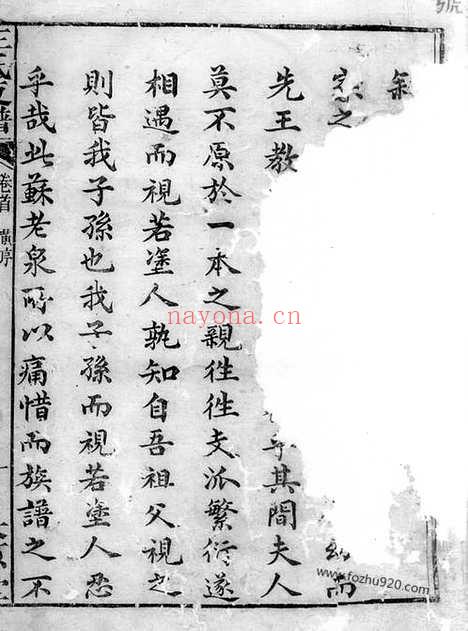 叙
而
之
先王教
其間夫人
莫不原於一本之親徃徃支泒繁衍遂
相遇而視若塗人孰知自吾祖父視之
則皆我子孫也我子孫而視若塗人忍
乎哉此蘇老泉所以痛惜而族譜之不
王氏支譜
卷首
序
nayona.cn
www.fozhu920.com